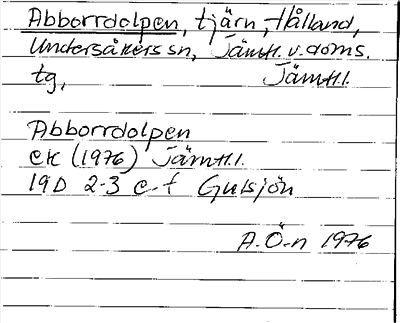 Abborrdolpen, tjärn, Hålland,
Undersåkers sn, Jämtl. v. doms.
tg, Jämtl.l.
Abborrdolpen
ek (1976) Jämtl.l.
19D 2-3 e-f Gulsjön
A.Ö-n 1976